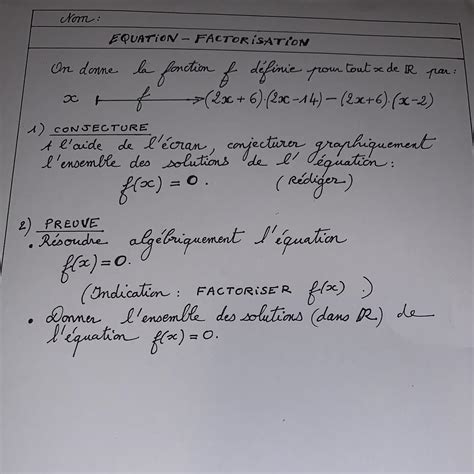 Nom:
EQUATION - FACTORISATION
On donne la fonction f définie pour tout x de ℝ par:
x ⟼ f (2x+6).(2x-14)-(2x+6).(x-2)
1) CONJECTURE
A l'aide de l'écran, conjecturer graphiquement
l'ensemble des solutions de l'équation:
f(x) = 0. (Rédiger)
2) PREUVE
• Résoudre algébriquement l'équation
f(x) = 0.
(Indication: FACTORISER f(x).)
• Donner l'ensemble des solutions (dans ℝ) de
l'équation f(x) = 0.